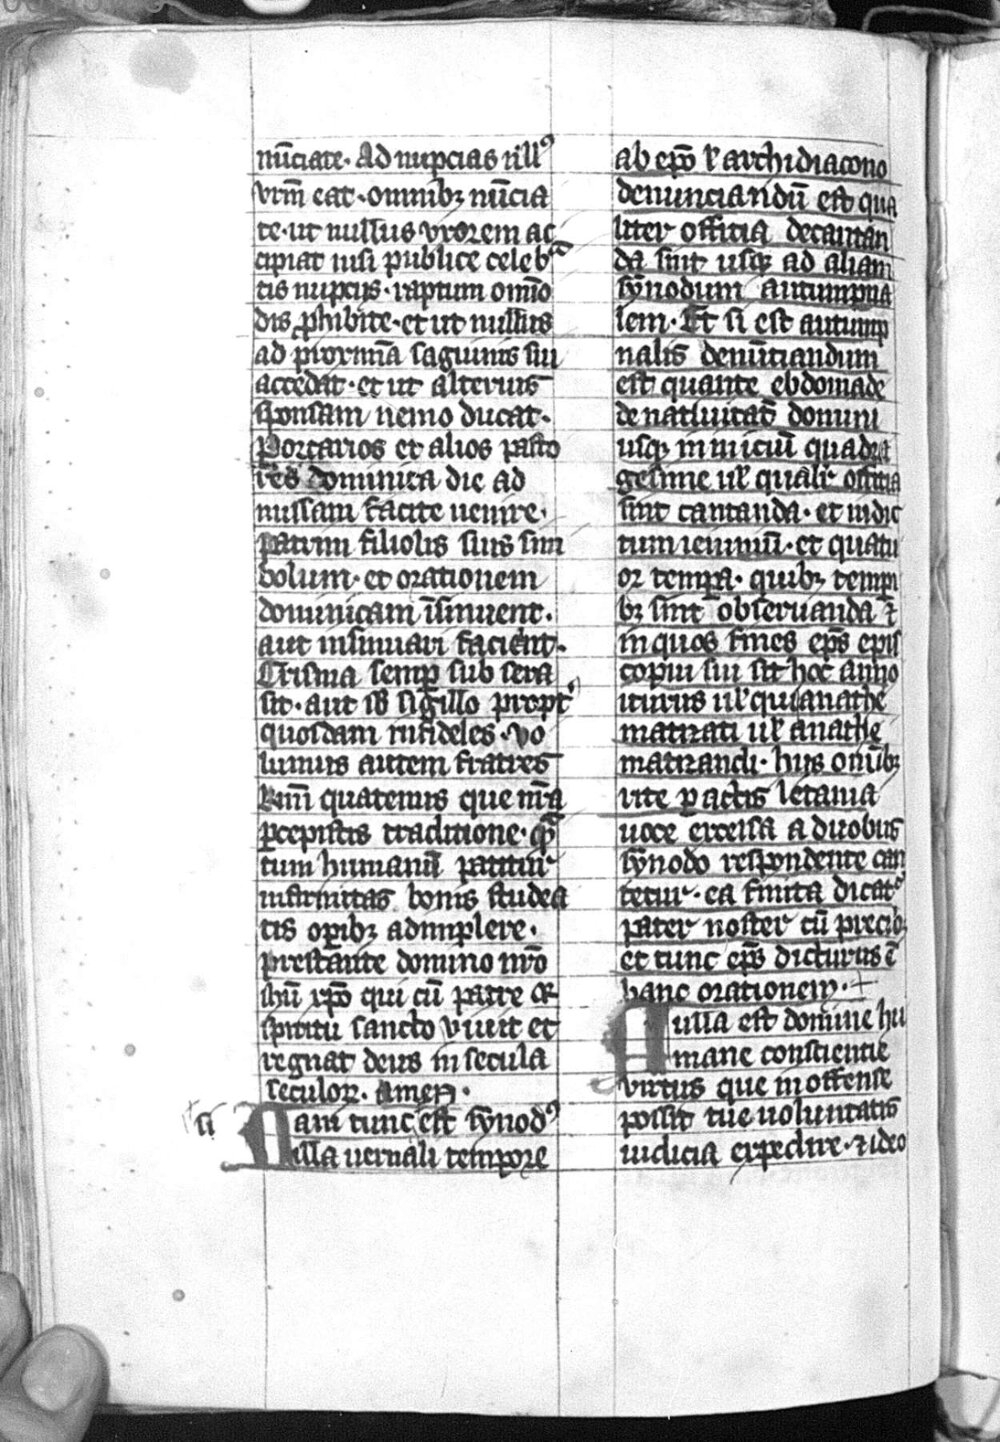 nūciate. Ad nupcias nullꝰ
vrm̄ eat. omnibꝫ nūcia
te. ut nullus vxorem ac
cipiat nisi publice celebͣ
tis nupcijs. raptum om̄io
dis ꝓhibite. et ut nullus
ad proxim̄a saguinis sui
accedat. et ut alterius
sponsam nemo ducat.
Porcarios et alios pasto
res dominica die ad
missam facite uenire.
patrini filiolis suis sim
bolum. et orationem
dominicam īsinuent.
aut insinuari facient.
Crisma semꝑ sub sera
sit. aut sb̄ sigillo propt̾
quosdam infideles. vo
lumus autem fratres
km̄i quatenus que nr̄a
ꝑcepistis traditione. qͣ̄
tum humana patitur
infirmitas bonis studea
tis oꝑibꝫ adimplere.
prestante domino nr̄o
ihū xp̄o qui cū patre et
spiritu sancto viuit et
regnat deus in secula
seculoꝝ. amen.
si
Nam tunc est synodꝰ
illa uernali tempore
ab ep̄o ł archidiacono
denunciandū est qua
liter officia decantan
da sint usqꝫ ad aliam
synodum autumpna
lem. Et si est autump
nalis denūciandum
est quante ebdomade
de natiuitatis domini
usqꝫ in iniciū quadra
gesime uł qualiṫ officia
sint cantanda. et indic
tum ieiuniū. et quatu
or temꝑa. quibꝫ tempi
bꝫ sint obseruanda ⁊
in quos fines ep̄s epis
copiū sui sit hoc anno
iturus uł qui anathe
matizati uł anathe
matizandi. hijs omībꝫ
rite ꝑactis letania
uoce excelsa a duobus
synodo respondente can
tetur. ea finita dicat̾
pater noster cū precibꝫ
et tunc ep̄s dicturus ē
hanc orationem. +
Nulla est domine hu
mane conscientie
virtus que inoffense
possit tue uoluntatis
iudicia expedire. ⁊ ideo